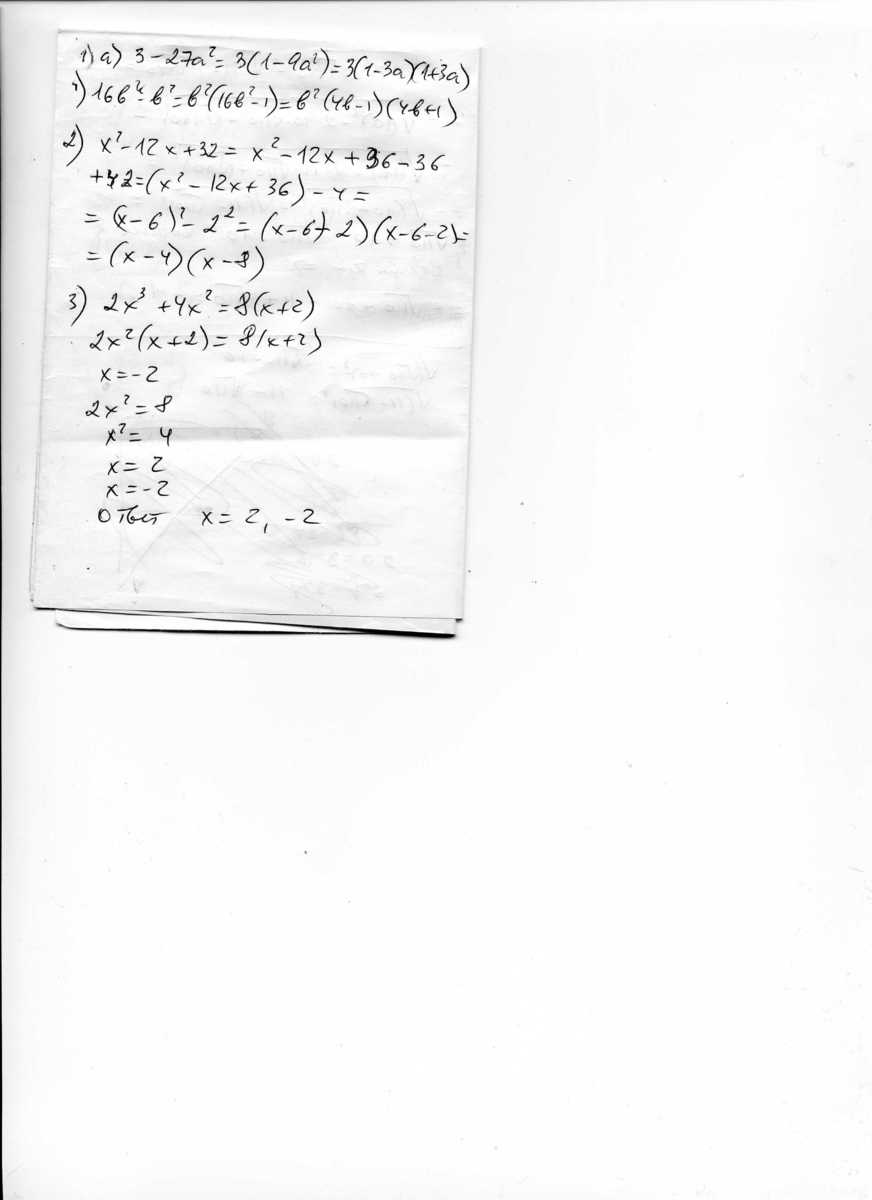 1) а) 3 - 27a² = 3(1 - 9a²) = 3(1-3a)(1+3a)
16b⁴ - b² = b²(16b² - 1) = b²(4b-1)(4b+1)
2) x² - 12x + 32 = x² - 12x + 36 - 36
+ 32 = (x² - 12x + 36) - 4 =
= (x - 6)² - 2² = (x-6+2)(x-6-2) =
= (x - 4)(x - 8)
3) 2x³ + 4x² = 8(x+2)
2x²(x+2) = 8(x+2)
x = -2
2x² = 8
x² = 4
x = 2
x = -2
Ответ x = 2, -2